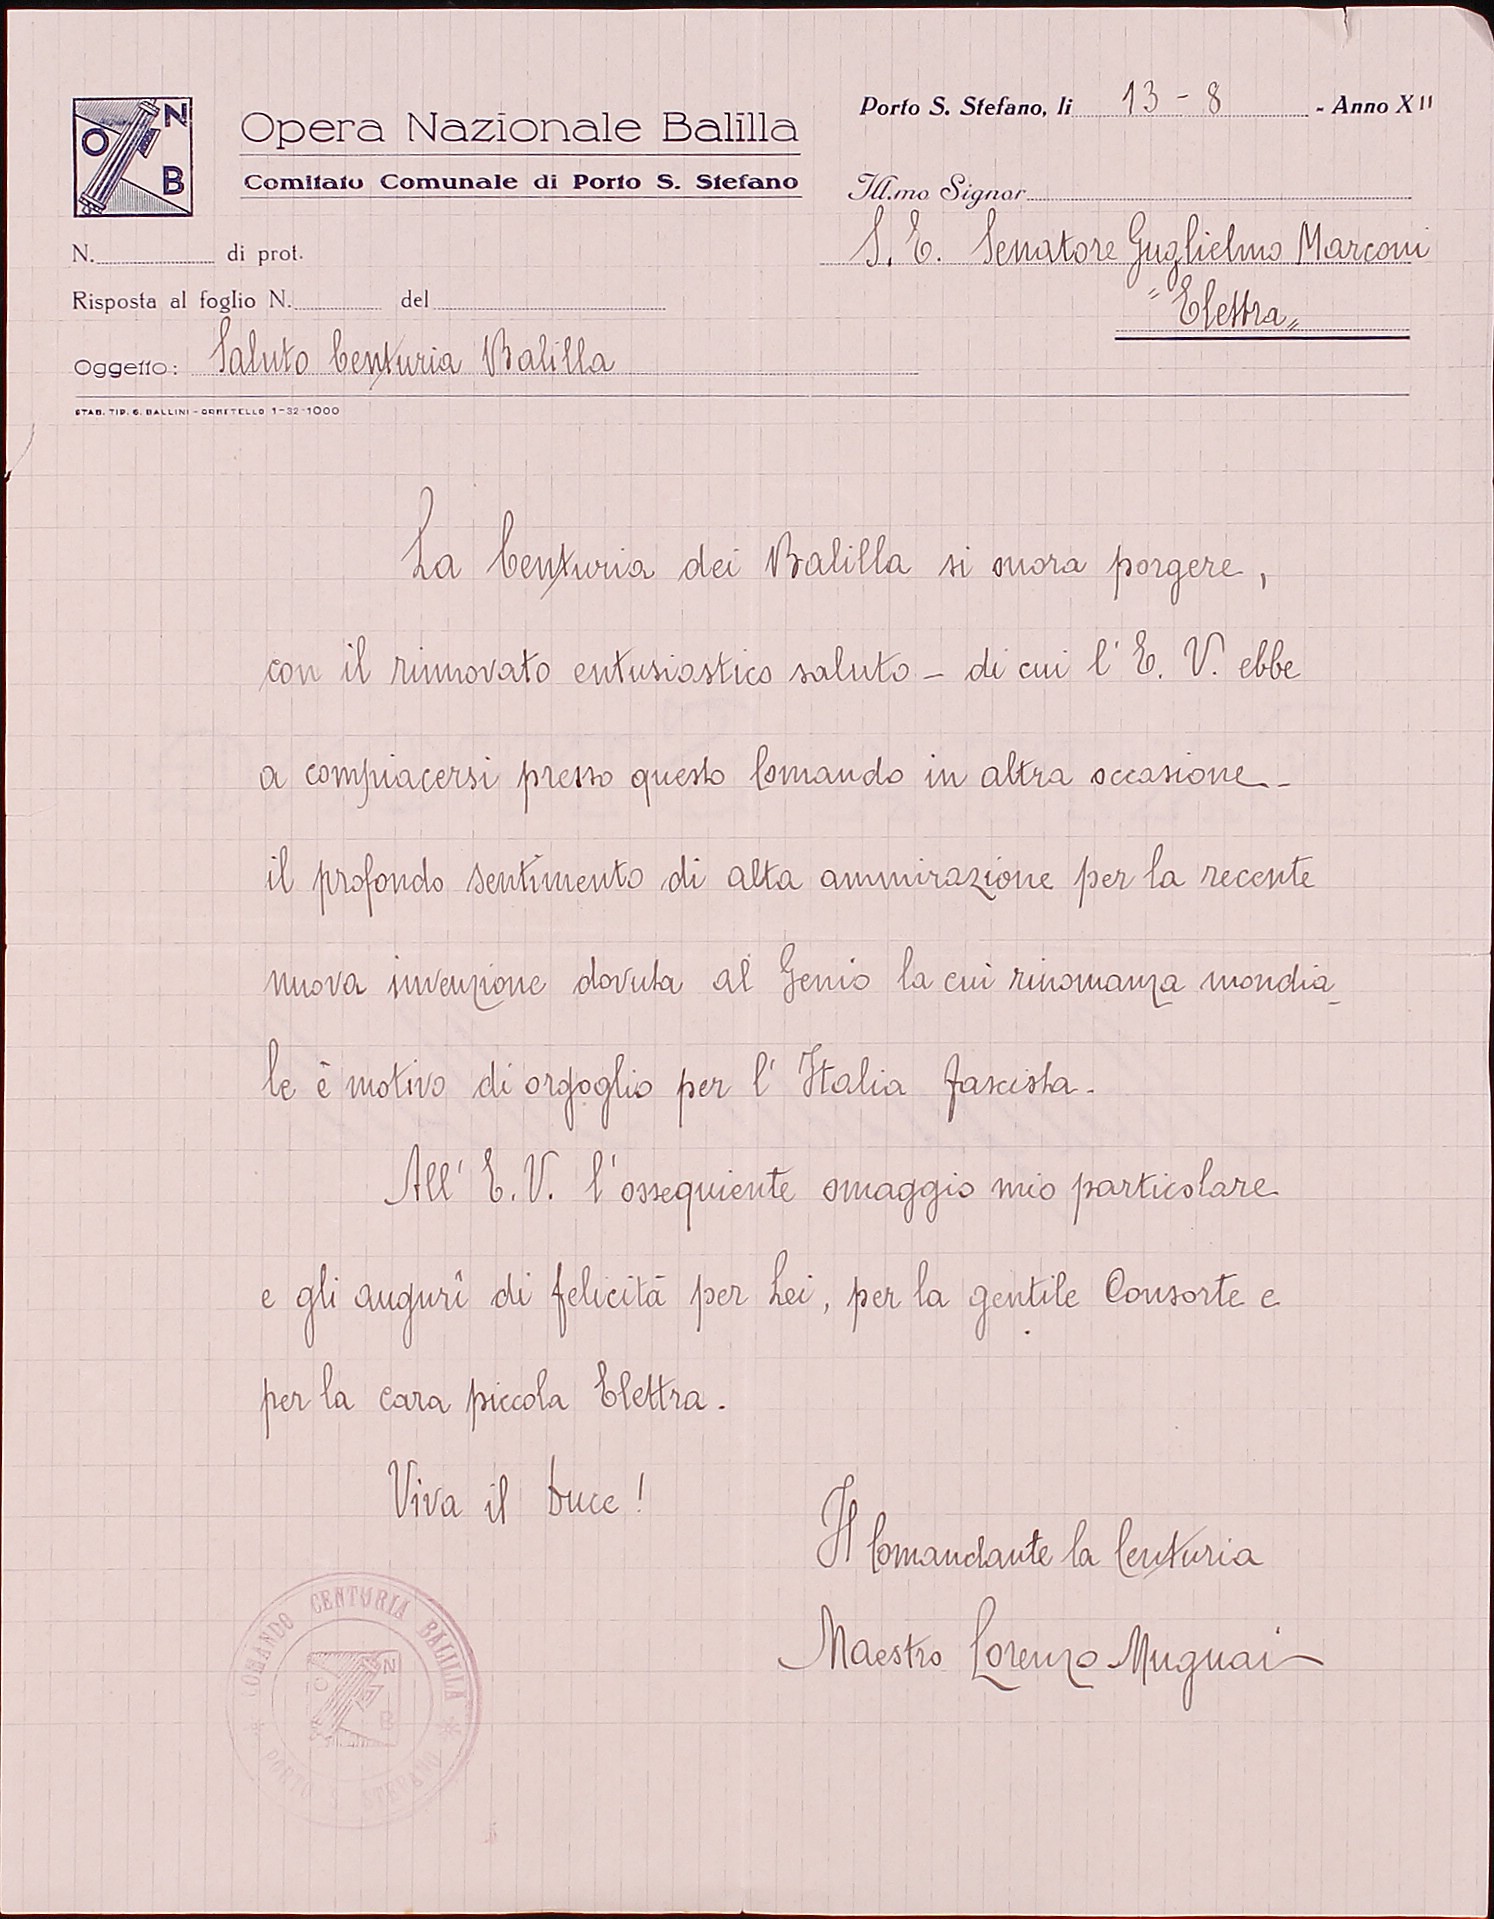 O N B
Opera Nazionale Balilla
Comitato Comunale di Porto S. Stefano
Porto S. Stefano, li 13 - 8 - Anno XII
Ill.mo Signor
S. E. Senatore Guglielmo Marconi
"Elettra"
N. di prot.
Risposta al foglio N. del
Oggetto: Saluto Centuria Balilla
STAB. TIP. G. BALLINI - ORBETELLO 1-32-1000
La Centuria dei Balilla si onora porgere,
con il rinnovato entusiastico saluto - di cui l'E. V. ebbe
a compiacersi presso questo Comando in altra occasione -
il profondo sentimento di alta ammirazione per la recente
nuova invenzione dovuta al Genio la cui rinomanza mondia-
le è motivo di orgoglio per l'Italia fascista.
All'E. V. l'ossequiente omaggio mio particolare
e gli augurî di felicità per Lei, per la gentile Consorte e
per la cara piccola Elettra.
Viva il Duce!
Il Comandante la Centuria
Maestro Lorenzo Mugnai
COMANDO CENTURIA BALILLA
O N B
PORTO S. STEFANO